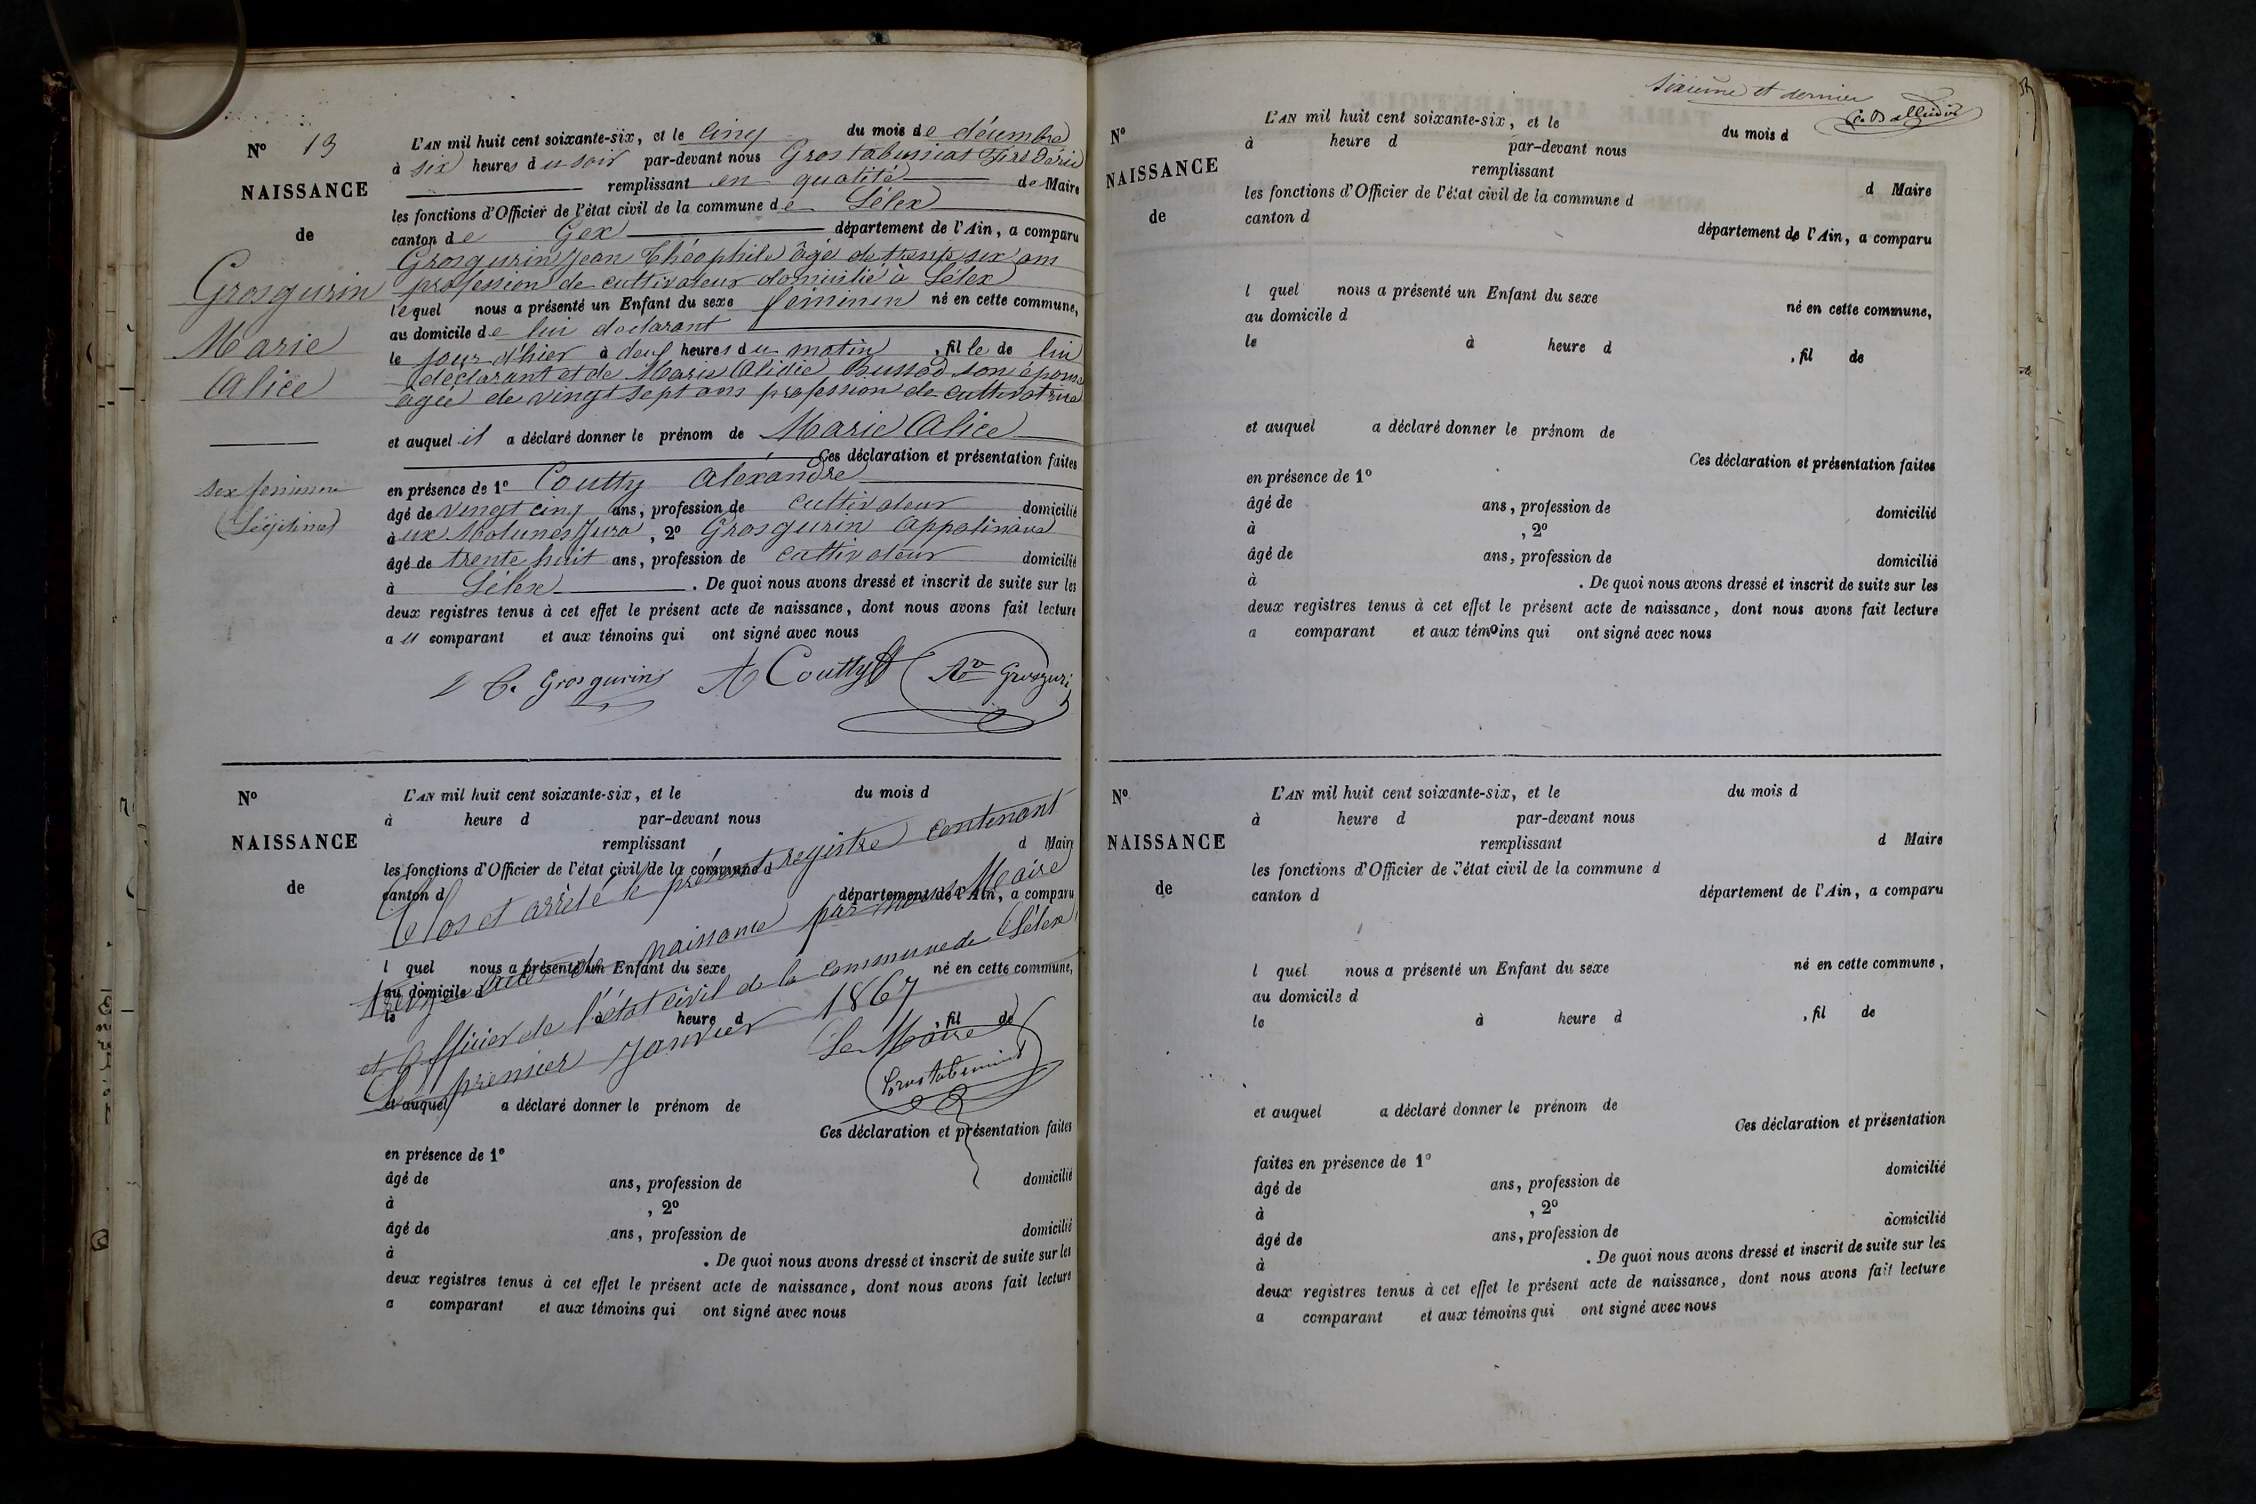 N° 13
NAISSANCE
de
Grosgurin
Marie
Alice
sex feminin
Légitime
L'AN mil huit cent soixante-six, et le cinq du mois de décembre
à six heures du soir par-devant nous Grostabussiat Fréderic
remplissant en qualité de Maire
les fonctions d'Officier de l'état civil de la commune de Lélex
canton de Gex département de l'Ain, a comparu
Grosgurin Jean Théophile âgé de trente six ans
profession de cultivateur domicilié à Lélex
lequel nous a présenté un Enfant du sexe feminin né en cette commune,
au domicile de lui declarant
le jour d'hier à deux heures du matin, fille de lui
déclarant et de Marie son épouse
agée de vingt sept ans profession de cultivatrice
et auquel il a déclaré donner le prénom de Marie Alice
Ces déclaration et présentation faites
en présence de 1° Coutty Alexandre
âgé de vingt cinq ans, profession de cultivateur domicilié
à ux Molunes Jura, 2° Grosgurin Appolinaire
âgé de trente huit ans, profession de cultivateur domicilié
à Lélex. De quoi nous avons dressé et inscrit de suite sur les
deux registres tenus à cet effet le présent acte de naissance, dont nous avons fait lecture
au comparant et aux témoins qui ont signé avec nous
Grosgurin A Coutty Grosguri
N°
NAISSANCE
de
L'AN mil huit cent soixante-six, et le du mois d
à heure d par-devant nous
remplissant d Maire
les fonctions d'Officier de l'état civil de la commune d
canton d département de l'Ain, a comparu
l quel nous a présenté un Enfant du sexe né en cette commune,
au domicile d
le à heure d , fil de
Clos et arrêté le présent registre contenant
treize actes de naissance par nous Maire
et Officier de l'état civil de la commune de Lélex
Le premier Janvier 1867
Le Maire
Grostabussiat
et auquel a déclaré donner le prénom de
Ces déclaration et présentation faites
en présence de 1°
âgé de ans, profession de domicilié
à , 2°
âgé de ans, profession de domicilié
à . De quoi nous avons dressé et inscrit de suite sur les
deux registres tenus à cet effet le présent acte de naissance, dont nous avons fait lecture
a comparant et aux témoins qui ont signé avec nous
Sixième et dernier
N°
NAISSANCE
de
L'AN mil huit cent soixante-six, et le du mois d
à heure d par-devant nous
remplissant d Maire
les fonctions d'Officier de l'état civil de la commune d
canton d département de l'Ain, a comparu
l quel nous a présenté un Enfant du sexe né en cette commune,
au domicile d
le à heure d , fil de
et auquel a déclaré donner le prénom de
Ces déclaration et présentation faites
en présence de 1°
âgé de ans, profession de domicilié
à , 2°
âgé de ans, profession de domicilié
à . De quoi nous avons dressé et inscrit de suite sur les
deux registres tenus à cet effet le présent acte de naissance, dont nous avons fait lecture
a comparant et aux témoins qui ont signé avec nous
N°
NAISSANCE
de
L'AN mil huit cent soixante-six, et le du mois d
à heure d par-devant nous
remplissant d Maire
les fonctions d'Officier de l'état civil de la commune d
canton d département de l'Ain, a comparu
l quel nous a présenté un Enfant du sexe né en cette commune,
au domicile d
le à heure d , fil de
et auquel a déclaré donner le prénom de
Ces déclaration et présentation
faites en présence de 1° domicilié
âgé de ans, profession de
à , 2° domicilié
âgé de ans, profession de
à . De quoi nous avons dressé et inscrit de suite sur les
deux registres tenus à cet effet le présent acte de naissance, dont nous avons fait lecture
a comparant et aux témoins qui ont signé avec nous